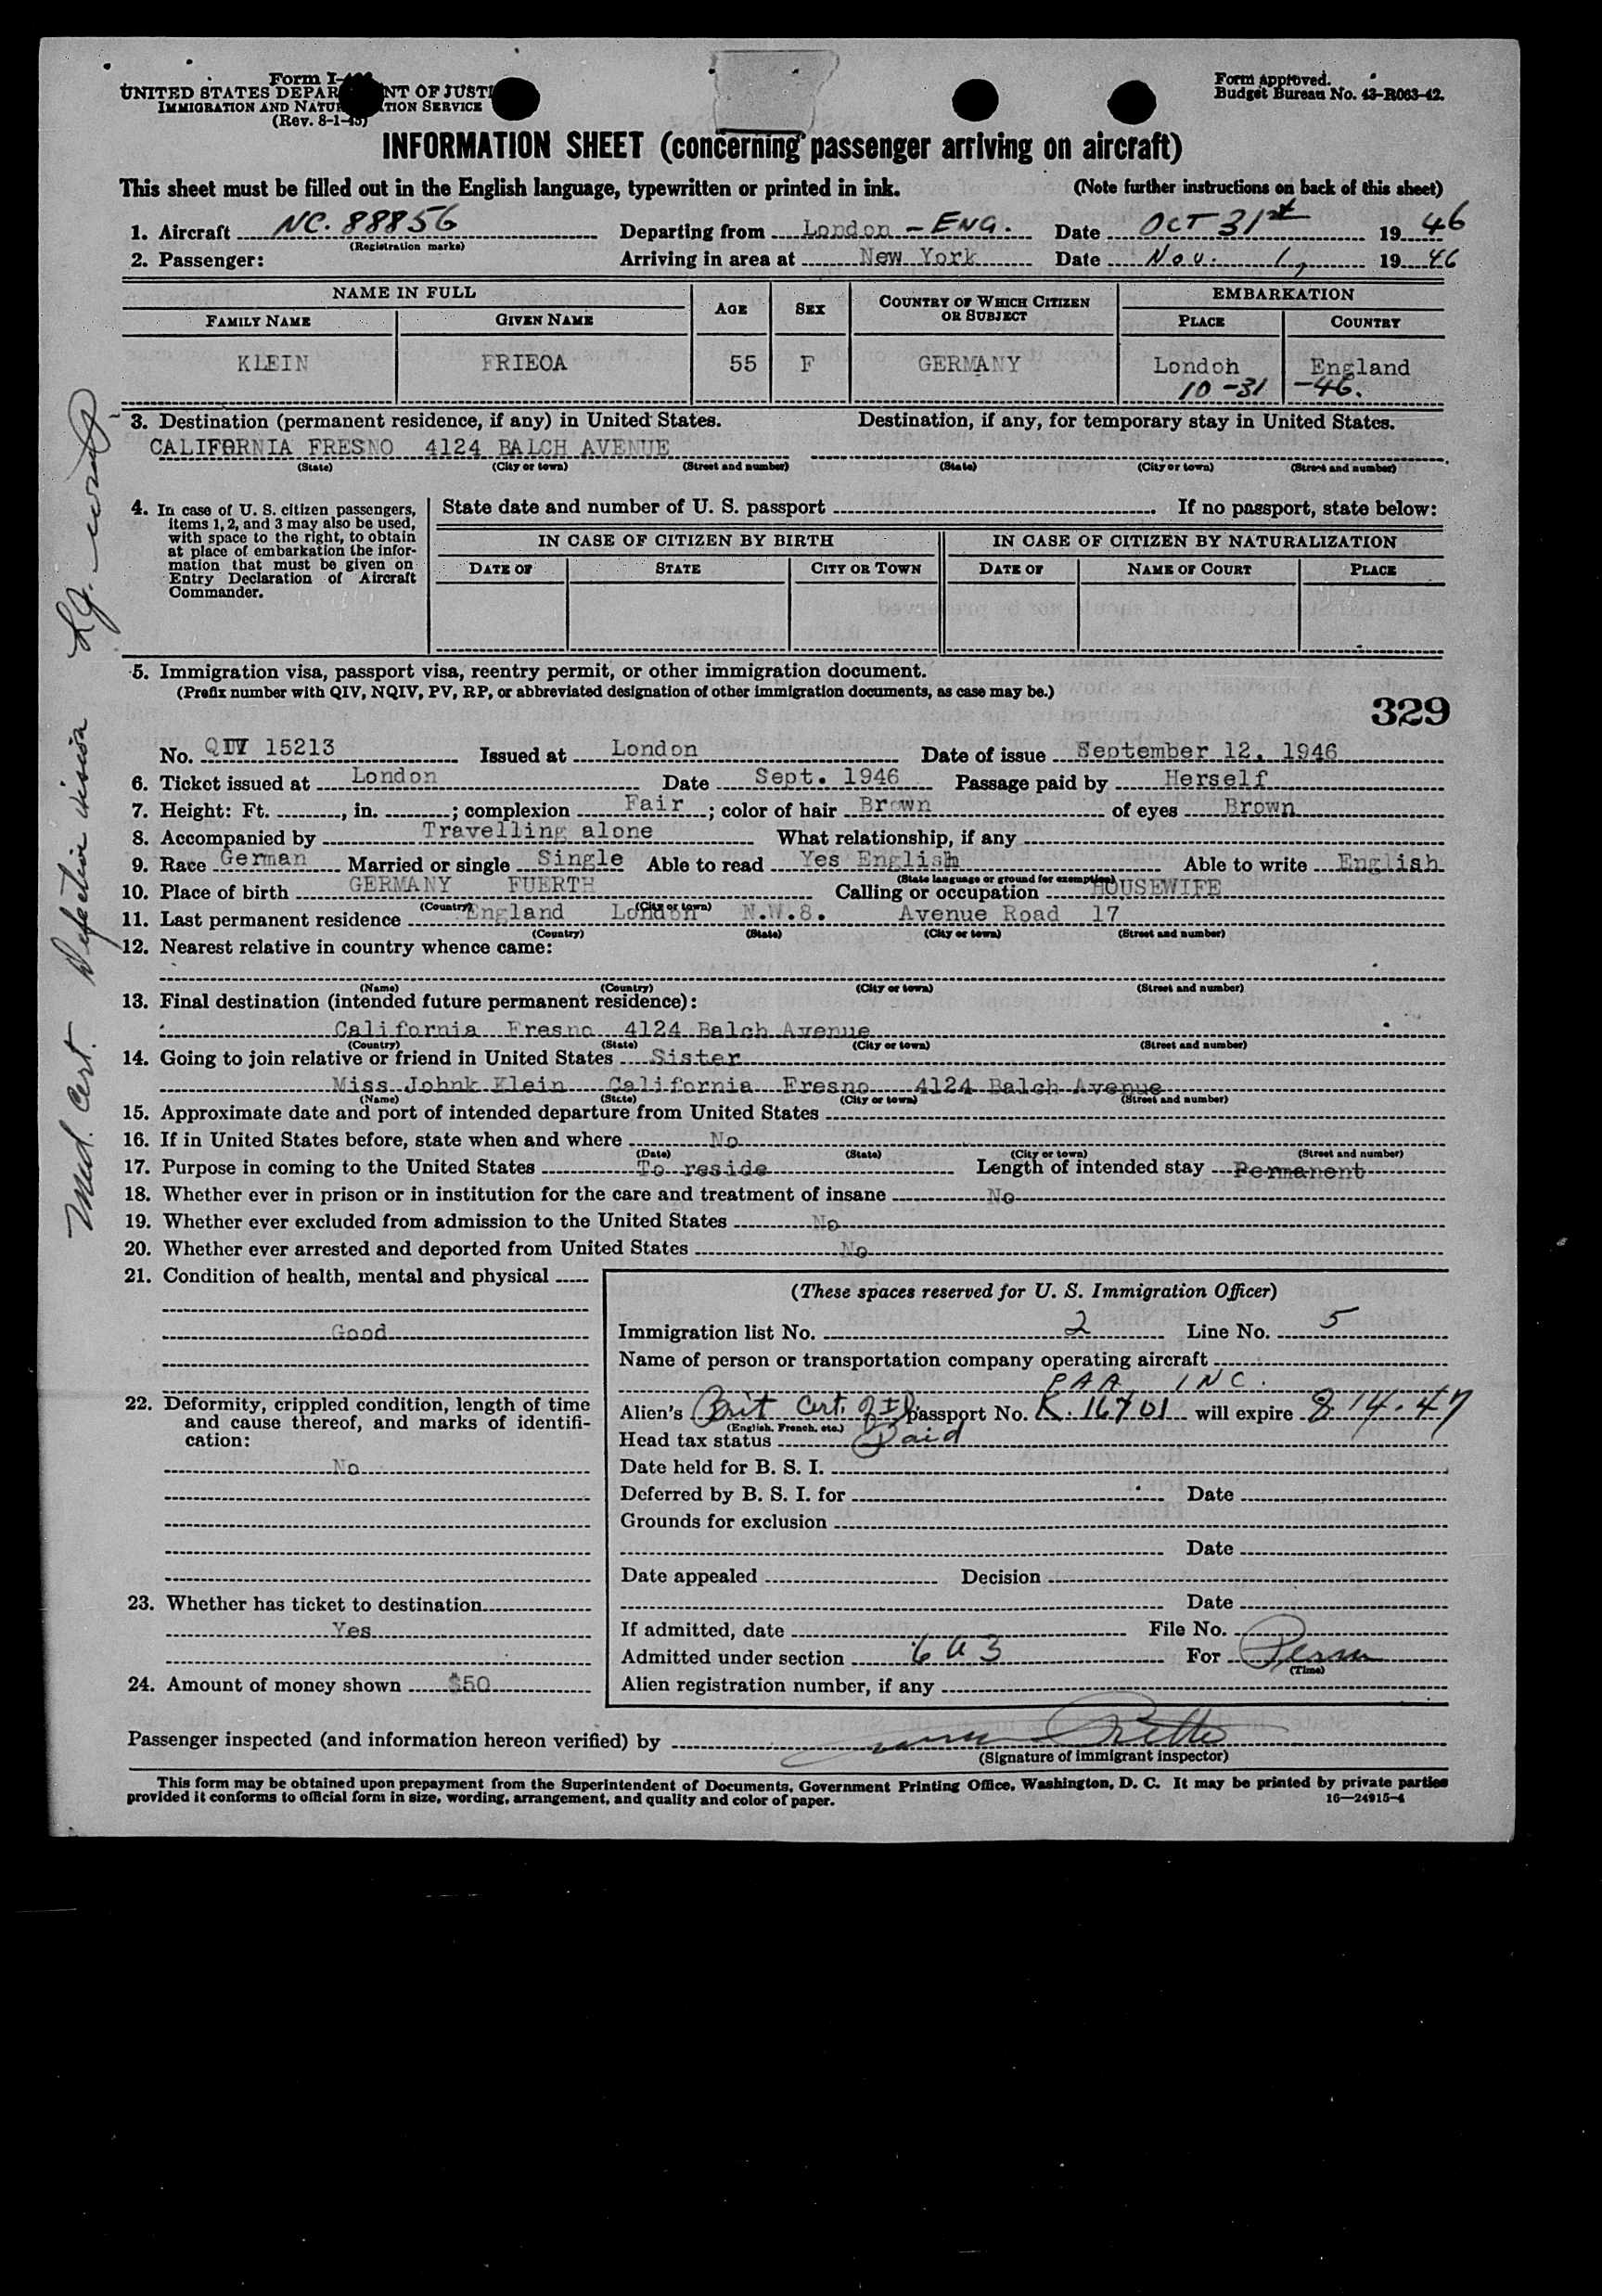 Form I-
UNITED STATES DEPAR NT OF JUSTI
IMMIGRATION AND NATUR TION SERVICE
(Rev. 8-1-45)
Form approved.
Budget Bureau No. 43-R063-42.
INFORMATION SHEET (concerning passenger arriving on aircraft)
This sheet must be filled out in the English language, typewritten or printed in ink. (Note further instructions on back of this sheet)
1. Aircraft NC. 88856 Departing from London - ENG. Date OCT 31st 1946
(Registration marks)
2. Passenger: Arriving in area at New York Date Nov. 1, 1946
NAME IN FULL AGE SEX COUNTRY OF WHICH CITIZEN OR SUBJECT EMBARKATION
FAMILY NAME GIVEN NAME PLACE COUNTRY
KLEIN FRIEOA 55 F GERMANY London England
10-31 -46.
3. Destination (permanent residence, if any) in United States. Destination, if any, for temporary stay in United States.
CALIFORNIA FRESNO 4124 BALCH AVENUE
(State) (City or town) (Street and number) (State) (City or town) (Street and number)
4. In case of U. S. citizen passengers, items 1, 2, and 3 may also be used, with space to the right, to obtain at place of embarkation the information that must be given on Entry Declaration of Aircraft Commander.
State date and number of U. S. passport If no passport, state below:
IN CASE OF CITIZEN BY BIRTH IN CASE OF CITIZEN BY NATURALIZATION
DATE OF STATE CITY OR TOWN DATE OF NAME OF COURT PLACE
5. Immigration visa, passport visa, reentry permit, or other immigration document.
(Prefix number with QIV, NQIV, PV, RP, or abbreviated designation of other immigration documents, as case may be.)
329
No. QIV 15213 Issued at London Date of issue September 12, 1946
6. Ticket issued at London Date Sept. 1946 Passage paid by Herself
7. Height: Ft. , in. ; complexion Fair ; color of hair Brown of eyes Brown
8. Accompanied by Travelling alone What relationship, if any
9. Race German Married or single Single Able to read Yes English Able to write English
(State language or ground for exemption)
10. Place of birth GERMANY FUERTH Calling or occupation HOUSEWIFE
(Country) (City or town)
11. Last permanent residence England London N.W.8. Avenue Road 17
(Country) (State) (City or town) (Street and number)
12. Nearest relative in country whence came:
(Name) (Country) (City or town) (Street and number)
13. Final destination (intended future permanent residence):
California Fresno 4124 Balch Avenue
(Country) (State) (City or town) (Street and number)
14. Going to join relative or friend in United States Sister
Miss Johnk Klein California Fresno 4124 Balch Avenue
(Name) (State) (City or town) (Street and number)
15. Approximate date and port of intended departure from United States
16. If in United States before, state when and where No
(Date) (State) (City or town) (Street and number)
17. Purpose in coming to the United States To reside Length of intended stay Permanent
18. Whether ever in prison or in institution for the care and treatment of insane No
19. Whether ever excluded from admission to the United States No
20. Whether ever arrested and deported from United States No
21. Condition of health, mental and physical
Good
22. Deformity, crippled condition, length of time and cause thereof, and marks of identification:
No
23. Whether has ticket to destination
Yes
24. Amount of money shown $50
(These spaces reserved for U. S. Immigration Officer)
Immigration list No. 2 Line No. 5
Name of person or transportation company operating aircraft
PAA INC.
Alien's Brit Cert. of Id. passport No. K. 16701 will expire 8-14-47
(English, French, etc.)
Head tax status Paid
Date held for B. S. I.
Deferred by B. S. I. for Date
Grounds for exclusion
Date
Date appealed Decision
Date
If admitted, date File No.
Admitted under section 6 a 3 For Perm
(Time)
Alien registration number, if any
Passenger inspected (and information hereon verified) by
(Signature of immigrant inspector)
This form may be obtained upon prepayment from the Superintendent of Documents, Government Printing Office, Washington, D. C. It may be printed by private parties
provided it conforms to official form in size, wording, arrangement, and quality and color of paper. 16—24915-4
Med. Cert. Defective vision